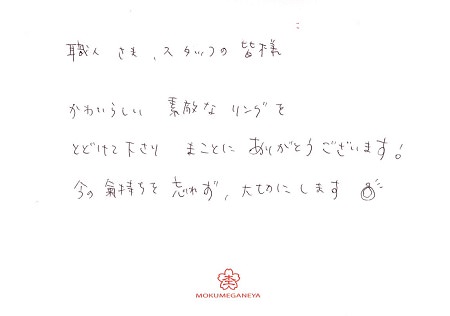 職人さま、スタッフの皆様
かわいらしい 素敵な リングを
とどけて下さり まことに ありがとうございます!
今の氣持ちを 忘れず、大切にします
MOKUMEGANEYA